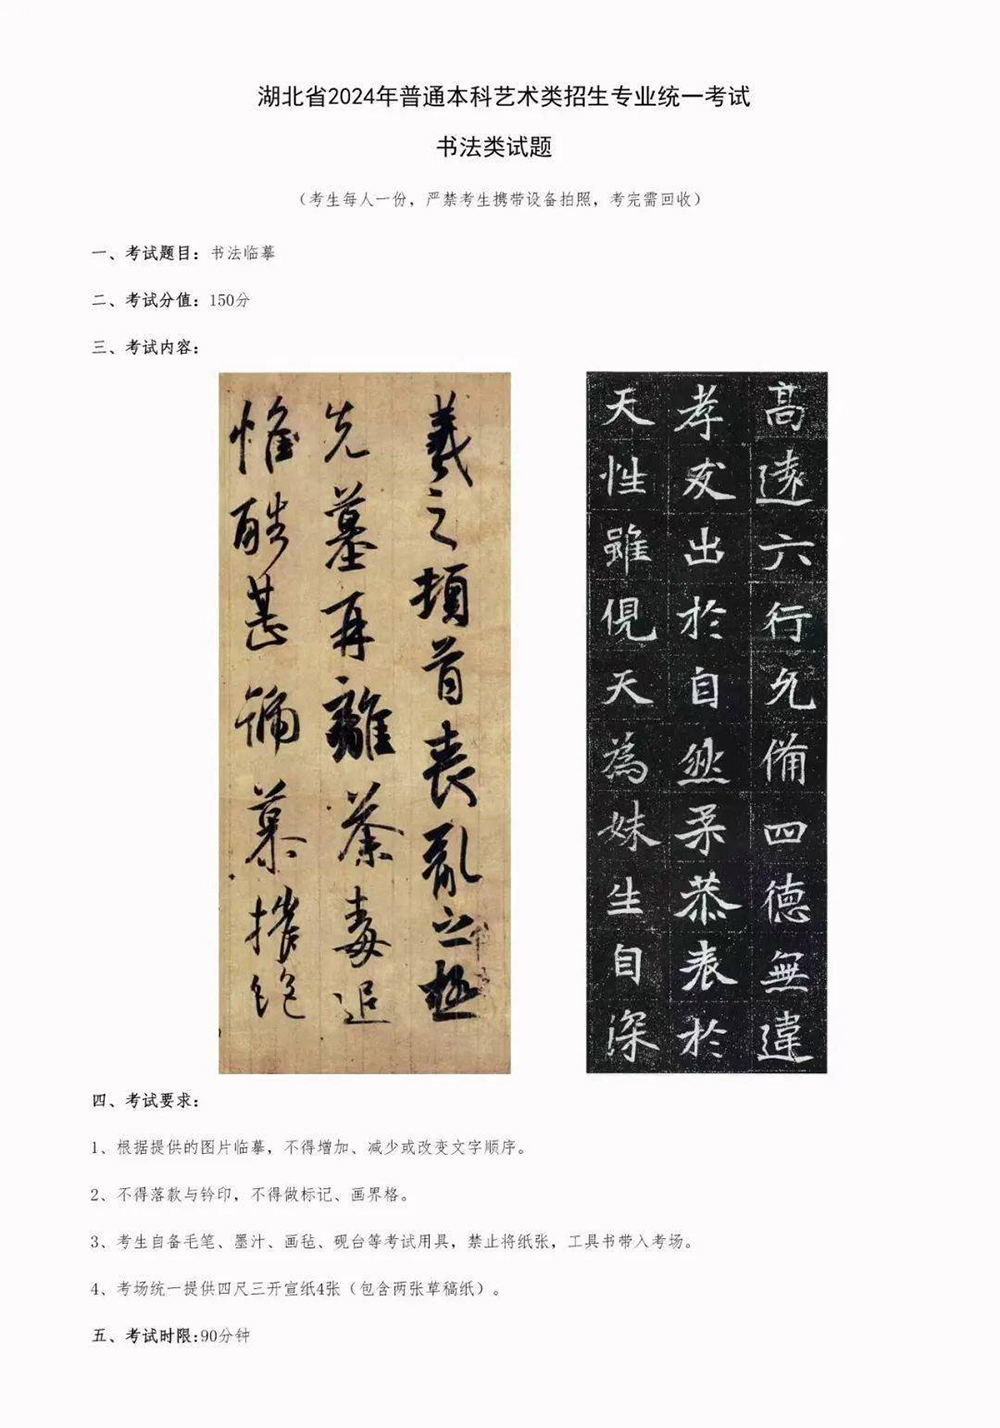 湖北省2024年普通本科艺术类招生专业统一考试
书法类试题
（考生每人一份，严禁考生携带设备拍照，考完需回收）
一、考试题目：书法临摹
二、考试分值：150分
三、考试内容：
羲之頓首喪亂之極
先墓再離荼毒追
惟酷甚號慕摧絕
高遠六行允備四德無違
孝友出於自然柔恭表於
天性雖俔天為妹生自深
四、考试要求：
1、根据提供的图片临摹，不得增加、减少或改变文字顺序。
2、不得落款与钤印，不得做标记、画界格。
3、考生自备毛笔、墨汁、画毡、砚台等考试用具，禁止将纸张，工具书带入考场。
4、考场统一提供四尺三开宣纸4张（包含两张草稿纸）。
五、考试时限:90分钟